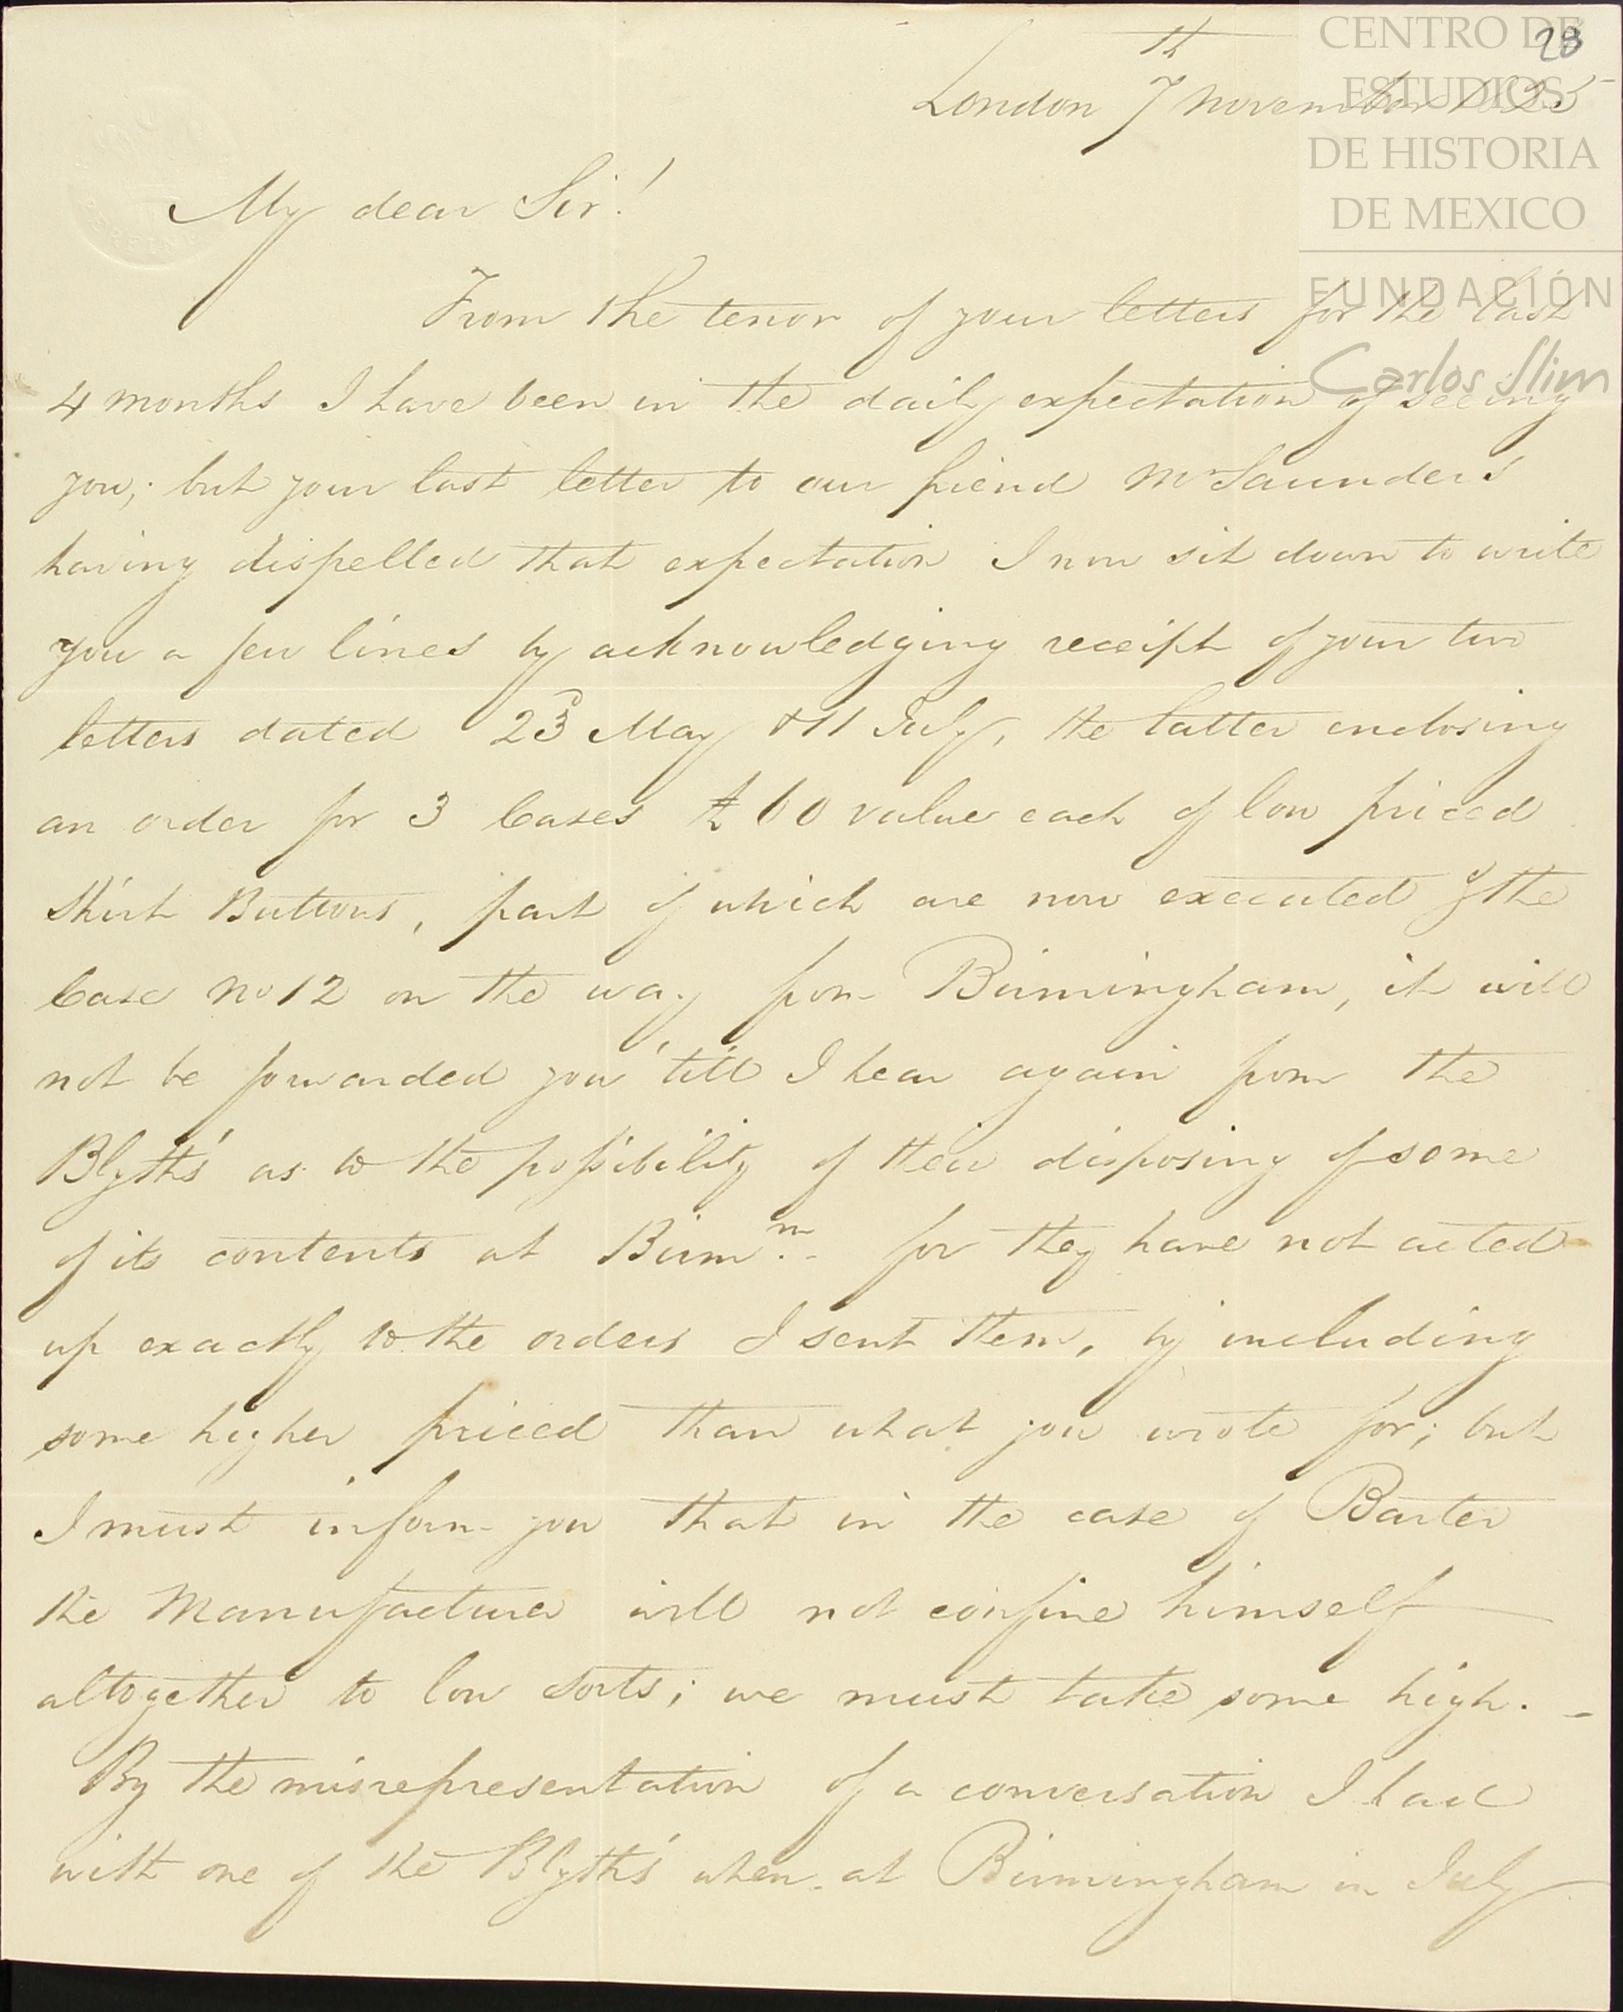 CENTRO DE
ESTUDIOS
DE HISTORIA
DE MEXICO
FUNDACIÓN
Carlos Slim
28
London 7th November 1825
My dear Sir!
From the tenor of your letters for the last
4 months I have been in the daily expectation of seeing
you; but your last letter to our friend Mr Saunders
having dispelled that expectation I now sit down to write
you a few lines by acknowledging receipt of your two
letters dated 23d May & 11 July, the latter enclosing
an order for 3 Cases £60 value each of low priced
Shirt Buttons, part of which are now executed & the
Case No 12 on the way from Birmingham, it will
not be forwarded you 'till I hear again from the
Blyths' as to the possibility of their disposing of some
of its contents at Birmm. for they have not acted
up exactly to the orders I sent them, by including
some higher priced than what you wrote for; but
I must inform you that in the case of Barter
the Manufacturer will not confine himself
altogether to low sorts; we must take some high. -
By the misrepresentation of a conversation I had
with one of the Blyths' when at Birmingham in July